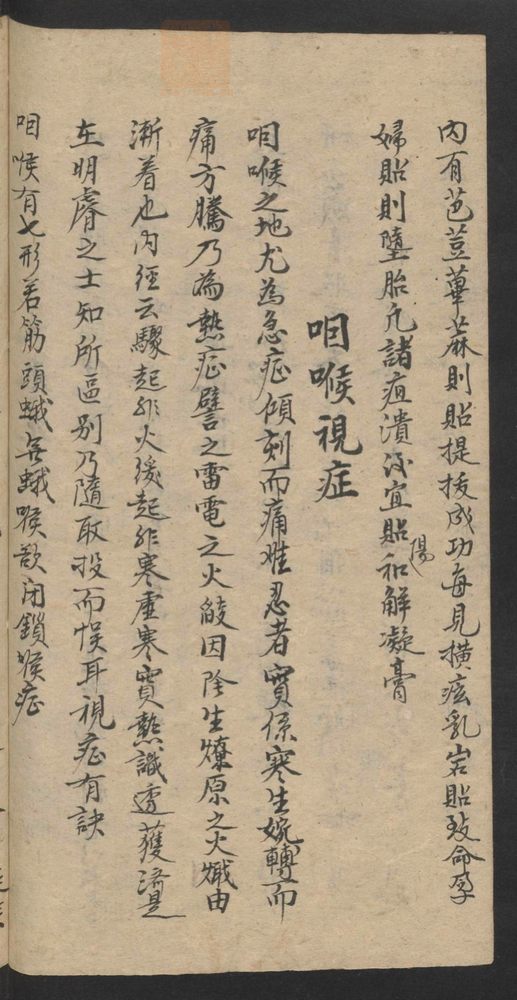 內有芭荳蓽蔴則貼提拔成功每見橫痃乳岩貼致命孕
婦貼則墮胎凡諸疽潰後宜貼和陽解凝膏
咽喉視症
咽喉之地尤為急症傾刻而痛难忍者實係寒生婉轉而
痛方騰乃為热症譬之雷電之火皷因陰生燎原之火熾由
漸着也內径云驟起非火缓起非寒虛寒實熱識透獲濟是
在明睿之士知所區别乃隨取投而悞耳視症有訣
咽喉有七形若筋頭蛾無蛾喉欲闭鎖喉症